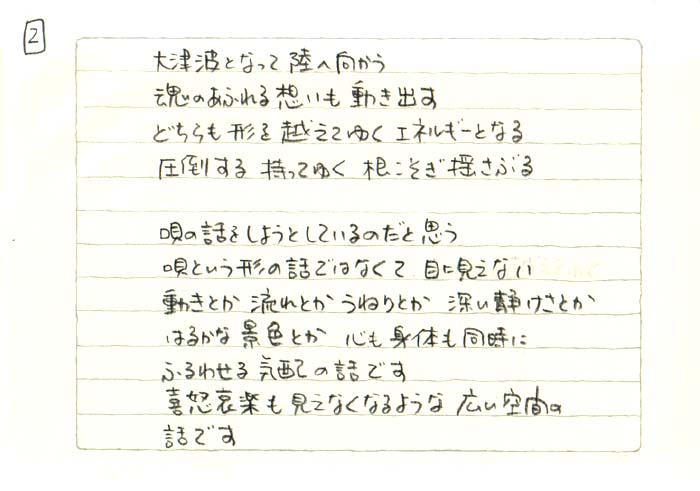 2
大津波となって 陸へ向かう
魂のあふれる想いも 動き出す
どちらも 形を 越えてゆく エネルギーとなる
圧倒する 持ってゆく 根こそぎ揺さぶる
唄の話をしようとしているのだと思う
唄という形の話ではなくて 目に見えない
動きとか 流れとか うねりとか 深い静けさとか
はるかな景色とか 心も身体も同時に
ふるわせる 気配の話です
喜怒哀楽も見えなくなるような 広い空間の
話です